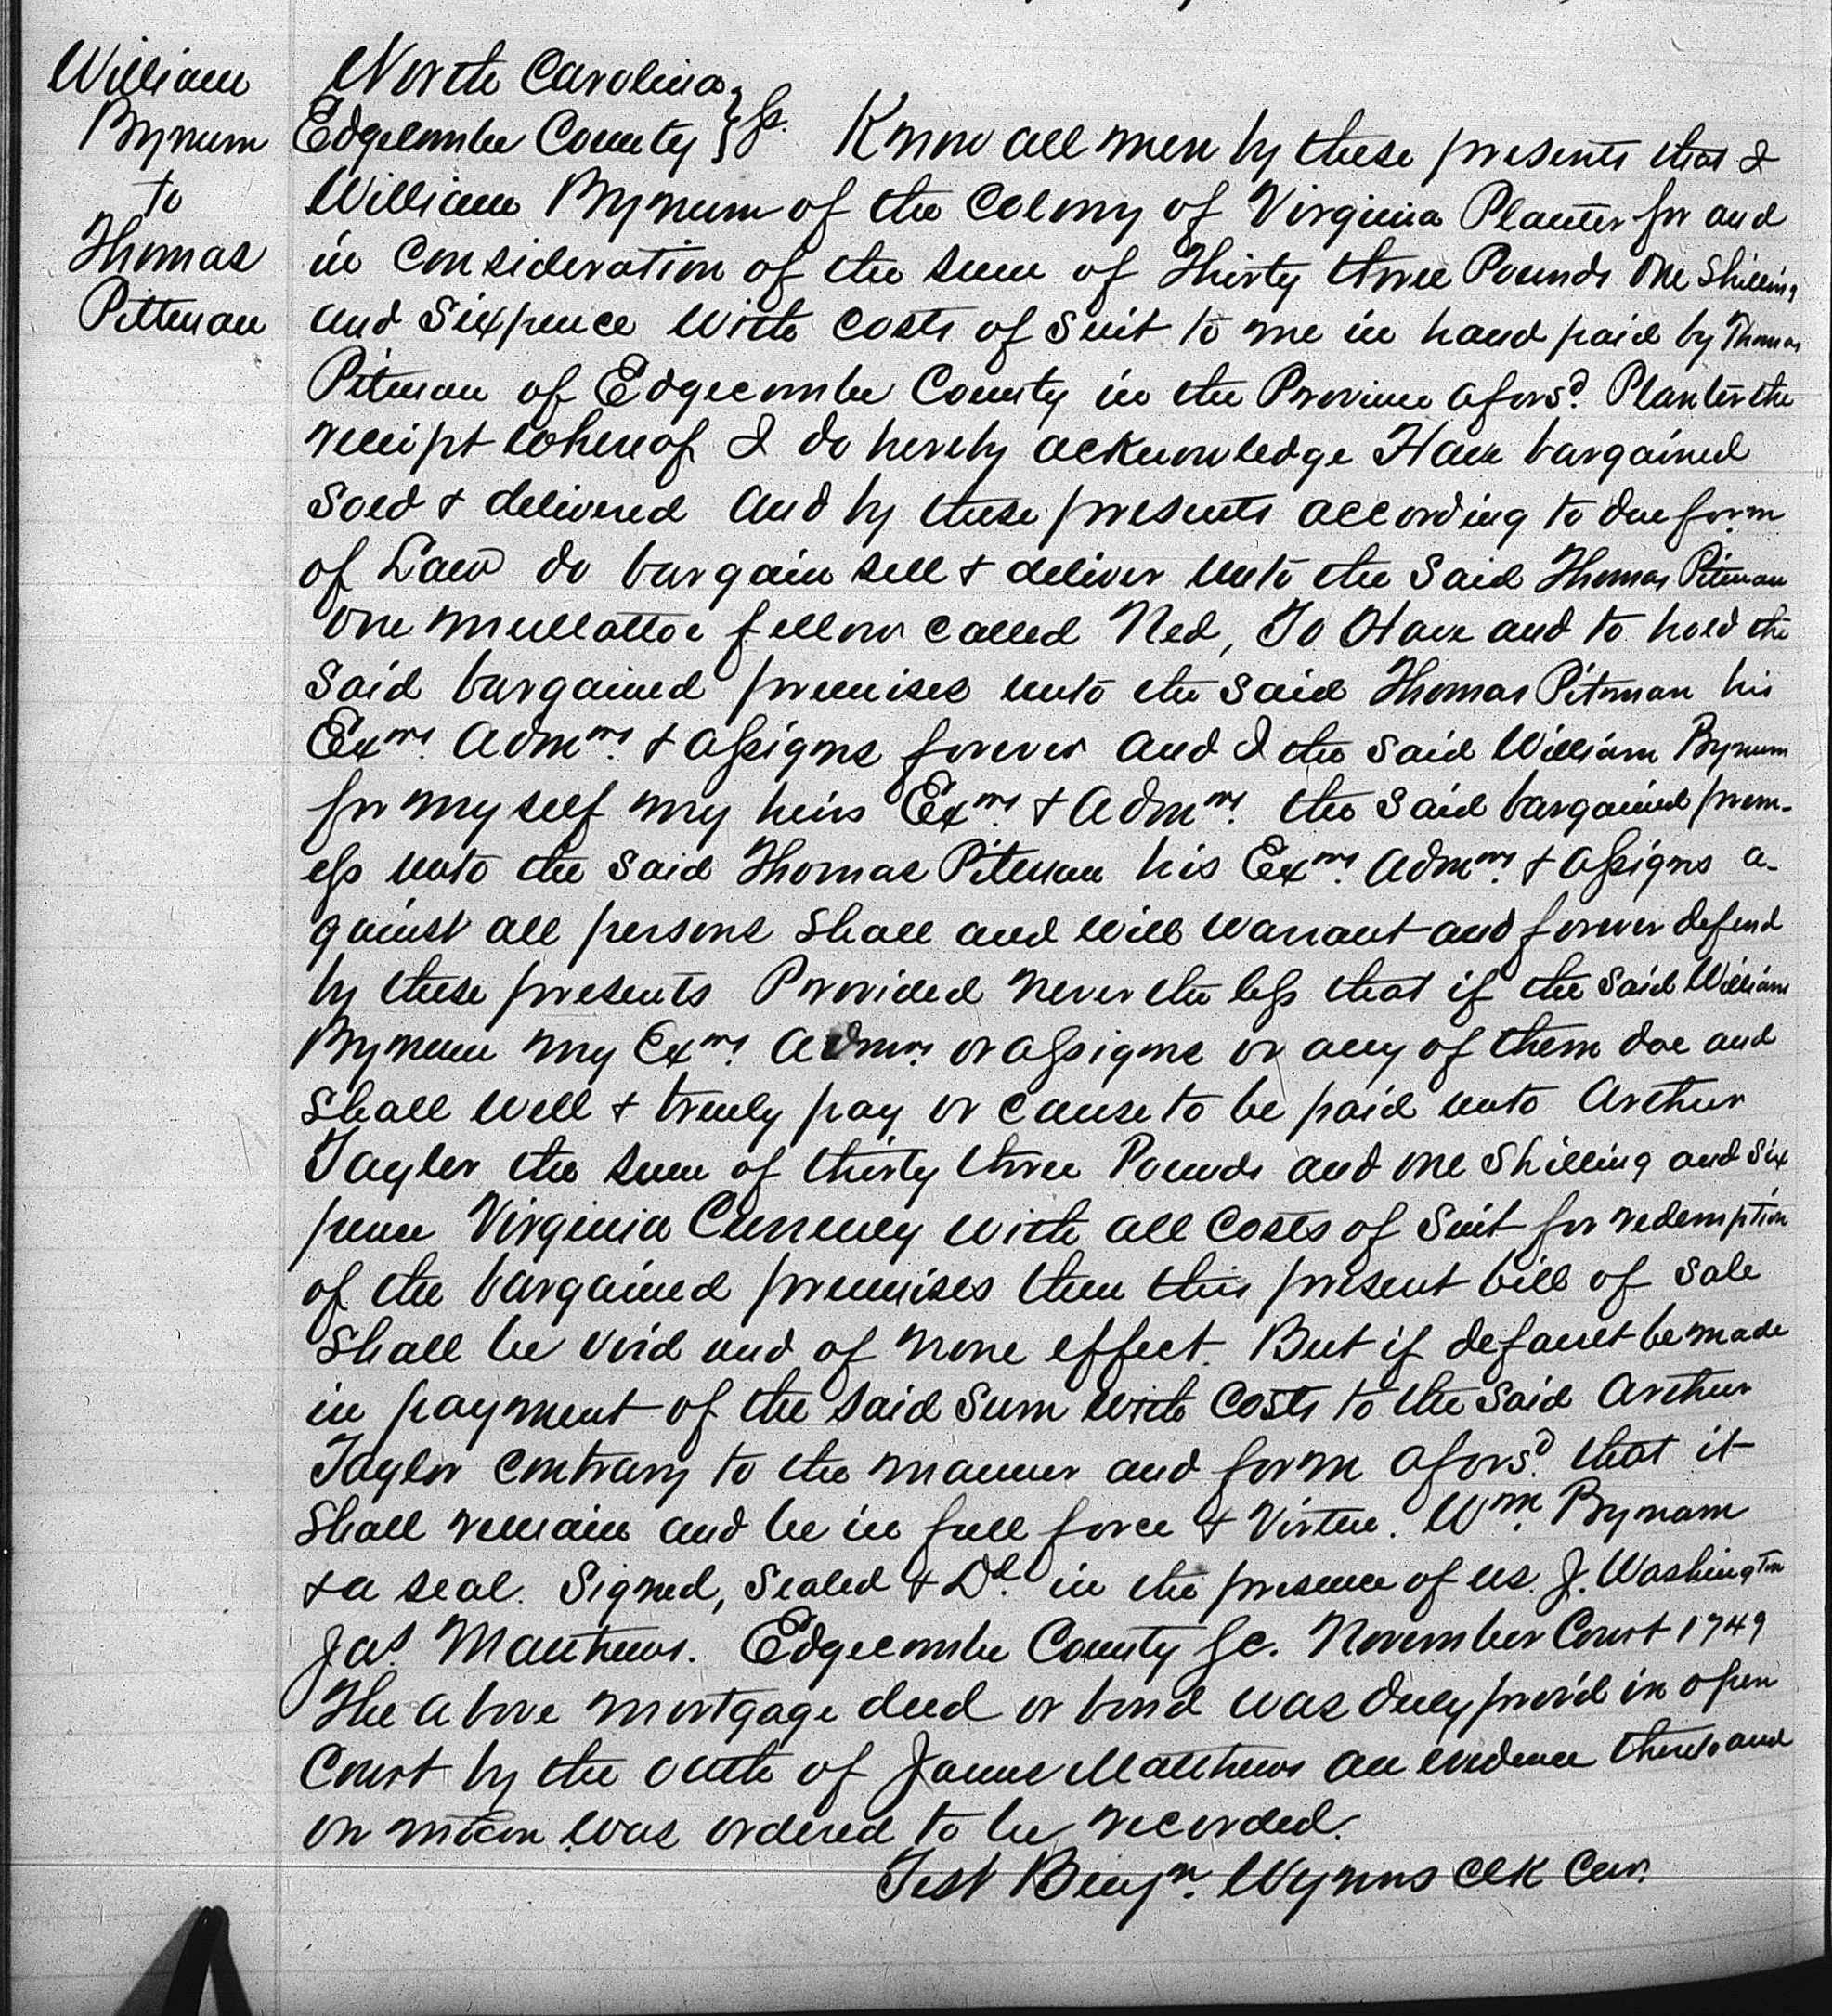 William
Bynum
to
Thomas
Pittman
North Carolina
Edgecombe County } Sc. Know all men by these presents that I
William Bynum of the Colony of Virginia Planter for and
in Consideration of the sum of Thirty three Pounds One Shilling
and Sixpence With Costs of Suit to me in hand paid by Thomas
Pitman of Edgecombe County in the Province aforsd. Planter the
receipt whereof I do hereby acknowledge Have bargained
Sold & delivered And by these presents according to due form
of Law do bargain sell & deliver Unto the Said Thomas Pitman
One Mullattoe fellow called Ned, To Have and to hold the
Said bargained premises unto the said Thomas Pitman his
Exrs. Admrs. & assigns forever And I the Said William Bynum
for myself my heirs Exrs. & Admrs. the said bargained prem-
ess unto the Said Thomas Pitman his Exrs. Admrs. & assigns a-
gainst all persons Shall and will warrant and forever defend
by these presents Provided Never the less that if the Said William
Bynum my Exrs. Admrs. or assigns or any of them doe and
Shall Well & truely pay or cause to be paid unto Arthur
Tayler the sum of thirty three Pounds and one Shilling and Six
pence Virginia Currency With all Costs of Suit for redemption
of the bargained premises then this present bill of Sale
Shall be void and of None effect. But if default be made
in payment of the said Sum with Costs to the Said Arthur
Taylor contrary to the manner and form aforsd. that it
Shall remain and be in full force & Virtue. Wm. Bynam
& a seal. Signed, Sealed & Dd. in the presence of us. J. Washington
Jas. Matthews. Edgecombe County Sc. November Court 1749
The above mortgage deed or bond was duly prov'd in open
Court by the oath of James Matthews an evidence thereto and
on mocon was ordered to be recorded.
Test Benjn. Wynns Clk Cur.